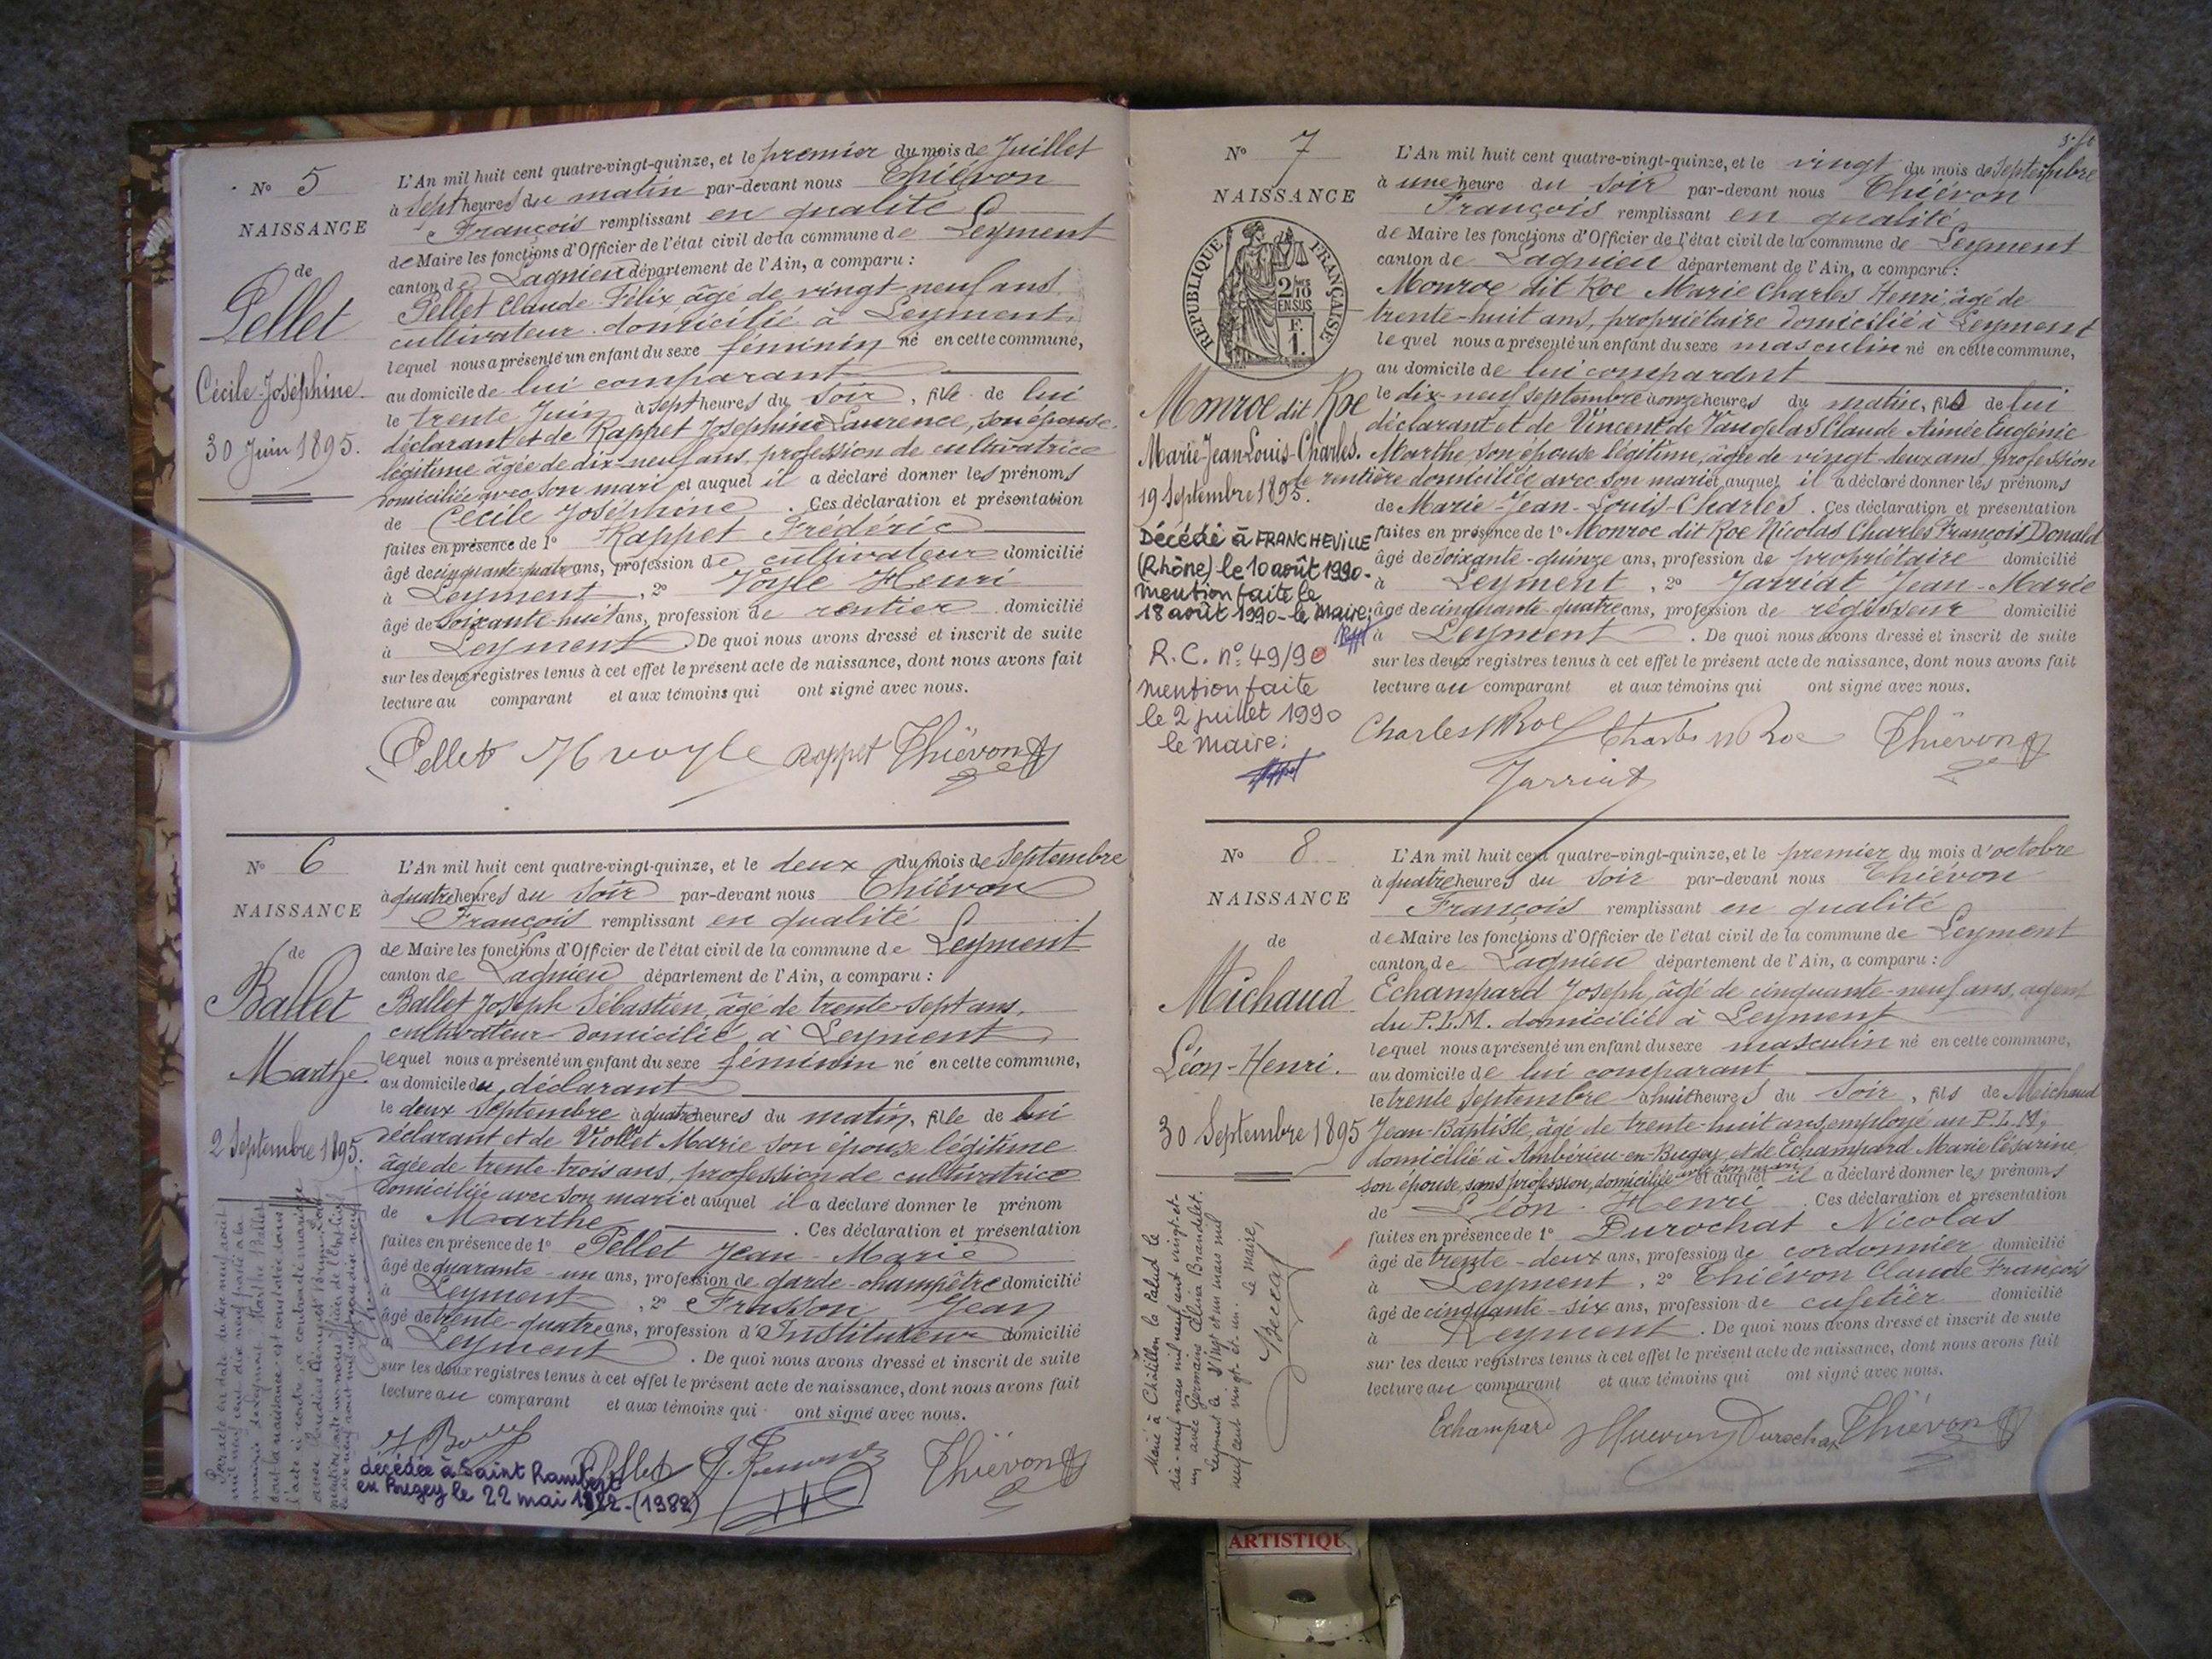 N° 5
NAISSANCE
de
Pellet
Cécile-Joséphine.
30 Juin 1895.
L'An mil huit cent quatre-vingt-quinze, et le premier du mois de Juillet
à sept heures du matin par-devant nous Thiévon
François remplissant en qualité
de Maire les fonctions d'Officier de l'état civil de la commune de Leyment
canton de Lagnieu département de l'Ain, a comparu :
Pellet Claude-Félix âgé de vingt-neuf ans
cultivateur domicilié à Leyment,
lequel nous a présenté un enfant du sexe féminin né en cette commune,
au domicile de lui comparant
le trente Juin à sept heures du soir, fille de lui
déclarant et de Rappet Joséphine Laurence, son épouse
légitime âgée de dix-neuf ans, profession de cultivatrice
domiciliée avec son mari et auquel il a déclaré donner les prénoms
de Cécile Joséphine . Ces déclaration et présentation
faites en présence de 1° Rappet Frédéric
âgé de cinquante-quatre ans, profession de cultivateur domicilié
à Leyment , 2° Voyle Henri
âgé de soixante-huit ans, profession de rentier domicilié
à Leyment . De quoi nous avons dressé et inscrit de suite
sur les deux registres tenus à cet effet le présent acte de naissance, dont nous avons fait
lecture au comparant et aux témoins qui ont signé avec nous.
Pellet H Voyle Rappet Thiévon
N° 6
NAISSANCE
de
Ballet
Marthe
2 Septembre 1895.
L'An mil huit cent quatre-vingt-quinze, et le deux du mois de Septembre
à quatre heures du soir par-devant nous Thiévon
François remplissant en qualité
de Maire les fonctions d'Officier de l'état civil de la commune de Leyment
canton de Lagnieu département de l'Ain, a comparu :
Ballet Joseph Sébastien, âgé de trente-sept ans,
cultivateur domicilié à Leyment
lequel nous a présenté un enfant du sexe féminin né en cette commune,
au domicile du déclarant
le deux Septembre à quatre heures du matin, fille de lui
déclarant et de Viollet Marie son épouse légitime
âgée de trente-trois ans, profession de cultivatrice
domiciliée avec son mari et auquel il a déclaré donner le prénom
de Marthe . Ces déclaration et présentation
faites en présence de 1° Pellet Jean-Marie
âgé de quarante-un ans, profession de garde-champêtre domicilié
à Leyment , 2° Frasson Jean
âgé de trente-quatre ans, profession d'Instituteur domicilié
à Leyment . De quoi nous avons dressé et inscrit de suite
sur les deux registres tenus à cet effet le présent acte de naissance, dont nous avons fait
lecture au comparant et aux témoins qui ont signé avec nous.
Pellet Thiévon
décédée à Saint Rambert
en Bugey le 22 mai (1982)
N° 7
NAISSANCE
de
RÉPUBLIQUE FRANÇAISE
2/10 EN SUS
F. 1.
Monroe dit Roe
Marie-Jean-Louis-Charles.
19 Septembre 1895.
Décédé à FRANCHEVILLE
(Rhône) le 10 août 1990.
mention faite le
18 août 1990 - le Maire:
R.C. n° 49/90
mention faite
le 2 juillet 1990
le Maire:
L'An mil huit cent quatre-vingt-quinze, et le vingt du mois de Septembre
à une heure du soir par-devant nous Thiévon
François remplissant en qualité
de Maire les fonctions d'Officier de l'état civil de la commune de Leyment
canton de Lagnieu département de l'Ain, a comparu :
Monroe dit Roe Marie Charles Henri âgé de
trente-huit ans, propriétaire domicilié à Leyment
lequel nous a présenté un enfant du sexe masculin né en cette commune,
au domicile de lui comparant
le dix-neuf septembre à onze heures du matin, fils de lui
déclarant et de Vincent de Vaugelas Claude Aimée Eugénie
Marthe, son épouse légitime, âgée de vingt-deux ans, profession
de rentière domiciliée avec son mari et auquel il a déclaré donner les prénoms
de Marie-Jean-Louis-Charles . Ces déclaration et présentation
faites en présence de 1° Monroe dit Roe Nicolas Charles François Donald
âgé de soixante-quinze ans, profession de propriétaire domicilié
à Leyment , 2° Jarriat Jean-Marie
âgé de cinquante-quatre ans, profession de régisseur domicilié
à Leyment . De quoi nous avons dressé et inscrit de suite
sur les deux registres tenus à cet effet le présent acte de naissance, dont nous avons fait
lecture au comparant et aux témoins qui ont signé avec nous.
Charles M Roe Charles M Roe Thiévon
Jarriat
N° 8
NAISSANCE
de
Michaud
Léon-Henri.
30 Septembre 1895
Marié à Châtillon la Palud le
dix-neuf mars mil neuf cent vingt-et-
un avec Germaine Alina Brandelet.
Leyment le vingt et un mars mil
neuf cent vingt-et-un. Le Maire,
L'An mil huit cent quatre-vingt-quinze, et le premier du mois d'octobre
à quatre heures du soir par-devant nous Thiévon
François remplissant en qualité
de Maire les fonctions d'Officier de l'état civil de la commune de Leyment
canton de Lagnieu département de l'Ain, a comparu :
Echampard Joseph, âgé de cinquante-neuf ans, agent
du P.L.M. domicilié à Leyment
lequel nous a présenté un enfant du sexe masculin né en cette commune,
au domicile de lui comparant
le trente Septembre à huit heures du soir, fils de Michaud
Jean-Baptiste, âgé de trente-huit ans, employé au P.L.M,
domicilié à Ambérieu-en-Bugey, et de Echampard Marie Césarine
son épouse, sans profession, domiciliée avec son mari et auquel il a déclaré donner les prénoms
de Léon-Henri . Ces déclaration et présentation
faites en présence de 1° Durochat Nicolas
âgé de trente-deux ans, profession de cordonnier domicilié
à Leyment , 2° Thiévon Claude François
âgé de cinquante-six ans, profession de cafetier domicilié
à Leyment . De quoi nous avons dressé et inscrit de suite
sur les deux registres tenus à cet effet le présent acte de naissance, dont nous avons fait
lecture au comparant et aux témoins qui ont signé avec nous.
Echampard Thiévon Durochat Thiévon
ARTISTIQU